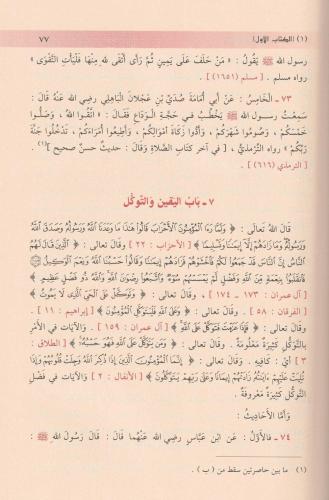 (١) الكتاب الأول
٧٧
رسول الله ﷺ يَقُولُ : « مَنْ حَلَفَ عَلَى يَمِينٍ ثُمَّ رَأَى أَتْقَى لله مِنْهَا فَلْيَأْتِ التَّقْوَى »
رواه مسلم . [ مسلم (١٦٥١) ] .
٧٣ ـ الْخَامِسُ : عَنْ أَبِي أُمَامَةَ صُدَيِّ بْنِ عَجْلَانَ الْبَاهِلِيِّ رضي الله عنهُ قَالَ :
سَمِعْتُ رسولَ الله ﷺ يَخْطُبُ فِي حَجَّةِ الْوَدَاعِ فَقَالَ : « اتَّقُوا الله ، وَصَلُّوا
خَمْسَكُمْ ، وَصُومُوا شَهْرَكُمْ ، وَأَدُّوا زَكَاةَ أَمْوَالِكُمْ ، وَأَطِيعُوا أُمَرَاءَكُمْ ، تَدْخُلُوا جَنَّةَ
رَبِّكُمْ » رواه التِّرْمِذِيُّ ، [ في آخر كتاب الصَّلاةِ وَقَالَ : حديثٌ حسنٌ صحيح ](١) .
[ الترمذي (٦١٦) ] .
٧ ـ بَابُ اليَقينِ وَالتَّوكُّلِ
قَالَ اللهُ تَعَالَى : ﴿ وَلَمَّا رَءَا الْمُؤْمِنُونَ الْأَحْزَابَ قَالُوا هَٰذَا مَا وَعَدَنَا اللَّهُ وَرَسُولُهُ وَصَدَقَ اللَّهُ
وَرَسُولُهُ وَمَا زَادَهُمْ إِلَّا إِيمَانًا وَتَسْلِيمًا ﴾ [ الأحزاب : ٢٢ ] وقال تعالى : ﴿ الَّذِينَ قَالَ لَهُمُ
النَّاسُ إِنَّ النَّاسَ قَدْ جَمَعُوا لَكُمْ فَاخْشَوْهُمْ فَزَادَهُمْ إِيمَانًا وَقَالُوا حَسْبُنَا اللَّهُ وَنِعْمَ الْوَكِيلُ
فَانْقَلَبُوا بِنِعْمَةٍ مِنَ اللَّهِ وَفَضْلٍ لَمْ يَمْسَسْهُمْ سُوءٌ وَاتَّبَعُوا رِضْوَانَ اللَّهِ وَاللَّهُ ذُو فَضْلٍ عَظِيمٍ ﴾
[ آل عمران : ١٧٣ ، ١٧٤ ] ، وقال تعالى : ﴿ وَتَوَكَّلْ عَلَى الْحَيِّ الَّذِي لَا يَمُوتُ ﴾
[ الفرقان : ٥٨ ] . وقال تعالى : ﴿ وَعَلَى اللَّهِ فَلْيَتَوَكَّلِ الْمُؤْمِنُونَ ﴾ [ إبراهيم : ١١ ]
وقال تعالى : ﴿ فَإِذَا عَزَمْتَ فَتَوَكَّلْ عَلَى اللَّهِ ﴾ [ آل عمران : ١٥٩ ] . والآيَات في الأَمْرِ
بِالتَّوَكُّلِ كَثِيرَةٌ مَعْلُومَةٌ . وقال تعالى : ﴿ وَمَن يَتَوَكَّلْ عَلَى اللَّهِ فَهُوَ حَسْبُهُ ﴾ [ الطلاق :
٣ ] أي : كَافِيهِ . وقال تعالى : ﴿ إِنَّمَا الْمُؤْمِنُونَ الَّذِينَ إِذَا ذُكِرَ اللَّهُ وَجِلَتْ قُلُوبُهُمْ وَإِذَا
تُلِيَتْ عَلَيْهِمْ ءَايَاتُهُ زَادَتْهُمْ إِيمَانًا وَعَلَى رَبِّهِمْ يَتَوَكَّلُونَ ﴾ [ الأنفال : ٢ ] والآيات في فَضْلِ
التَّوَكُّلِ كَثِيرَةٌ مَعْرُوفَةٌ .
وَأَمَّا الأَحَادِيثُ :
٧٤ ـ فَالأَوَّلُ : عَنِ ابْنِ عَبَّاسٍ رضي الله عنهُمَا قَالَ : قَالَ رَسُولُ اللهِ ﷺ :
(١) ما بين حاصرتين سقط من ( ب ) .